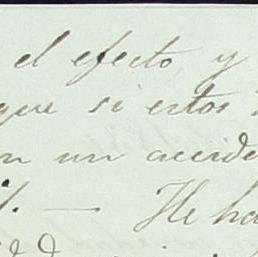 el efecto y
que si estos
un acuerde
— He ha